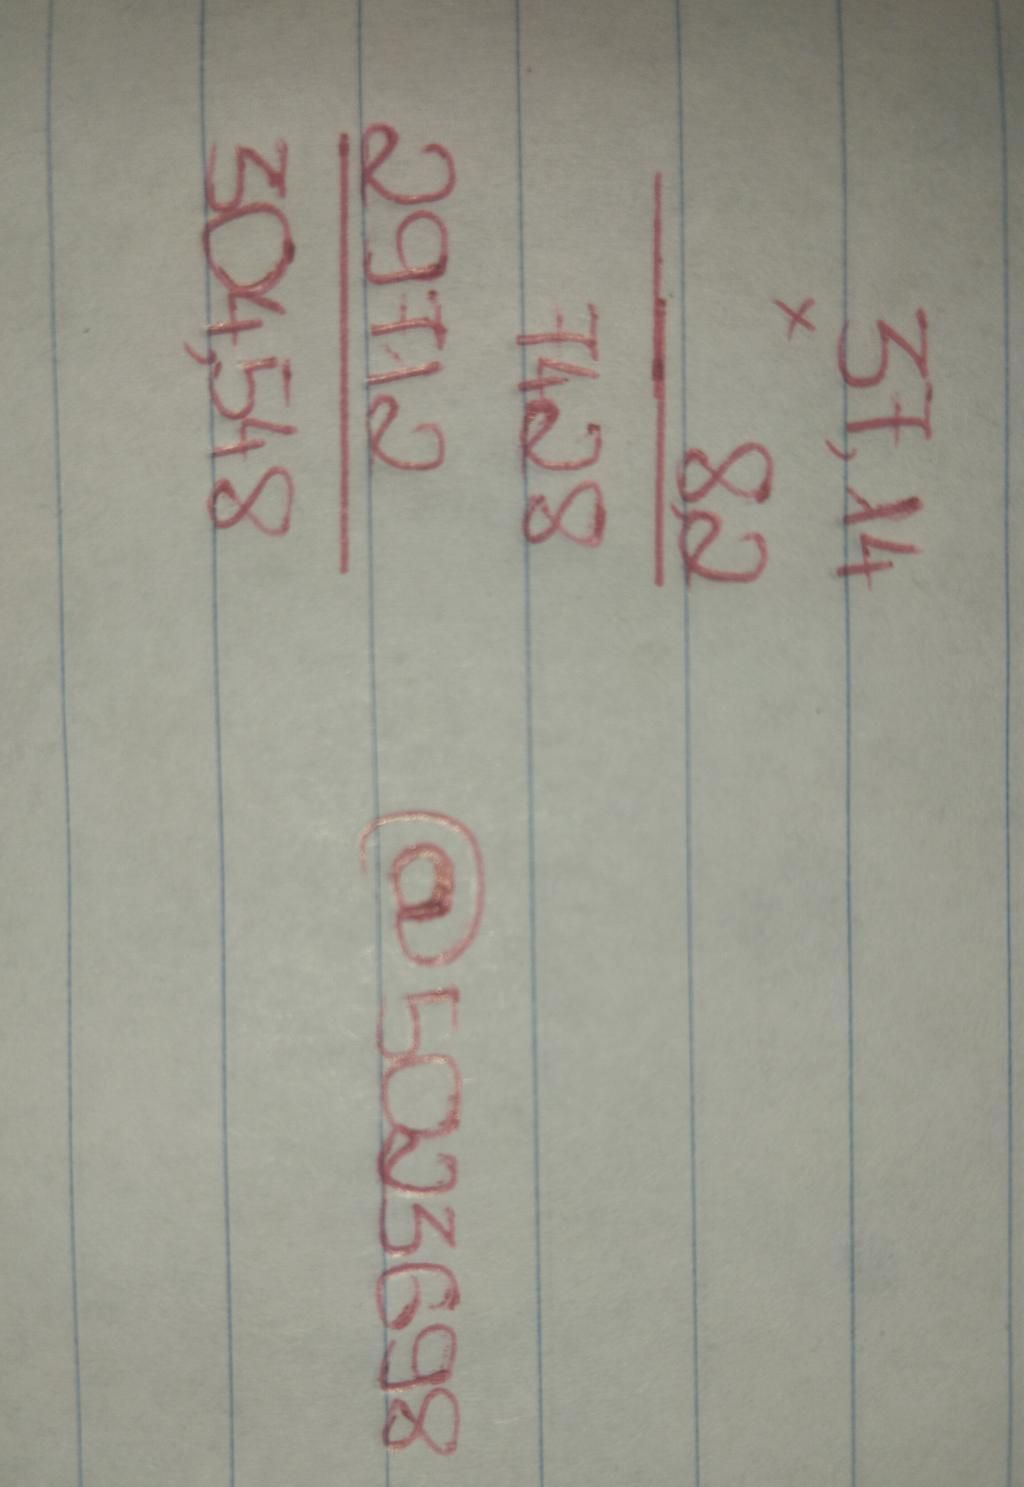 37,14
× 8,2
7428
29712
304,548
@15023698